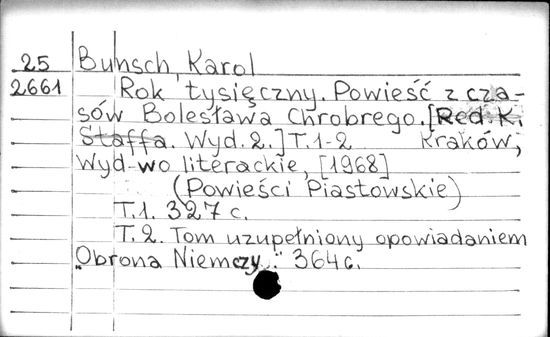 25 Bunsch, Karol
2661 Rok tysięczny. Powieść z cza-
sów Bolesława Chrobrego. [Red. K.
Staffa. Wyd. 2.] T. 1-2 Kraków,
Wyd-wo literackie, [1968]
(Powieści Piastowskie)
T. 1. 327 c.
T. 2. Tom uzupełniony opowiadaniem
„Obrona Niemczy." 364 c.